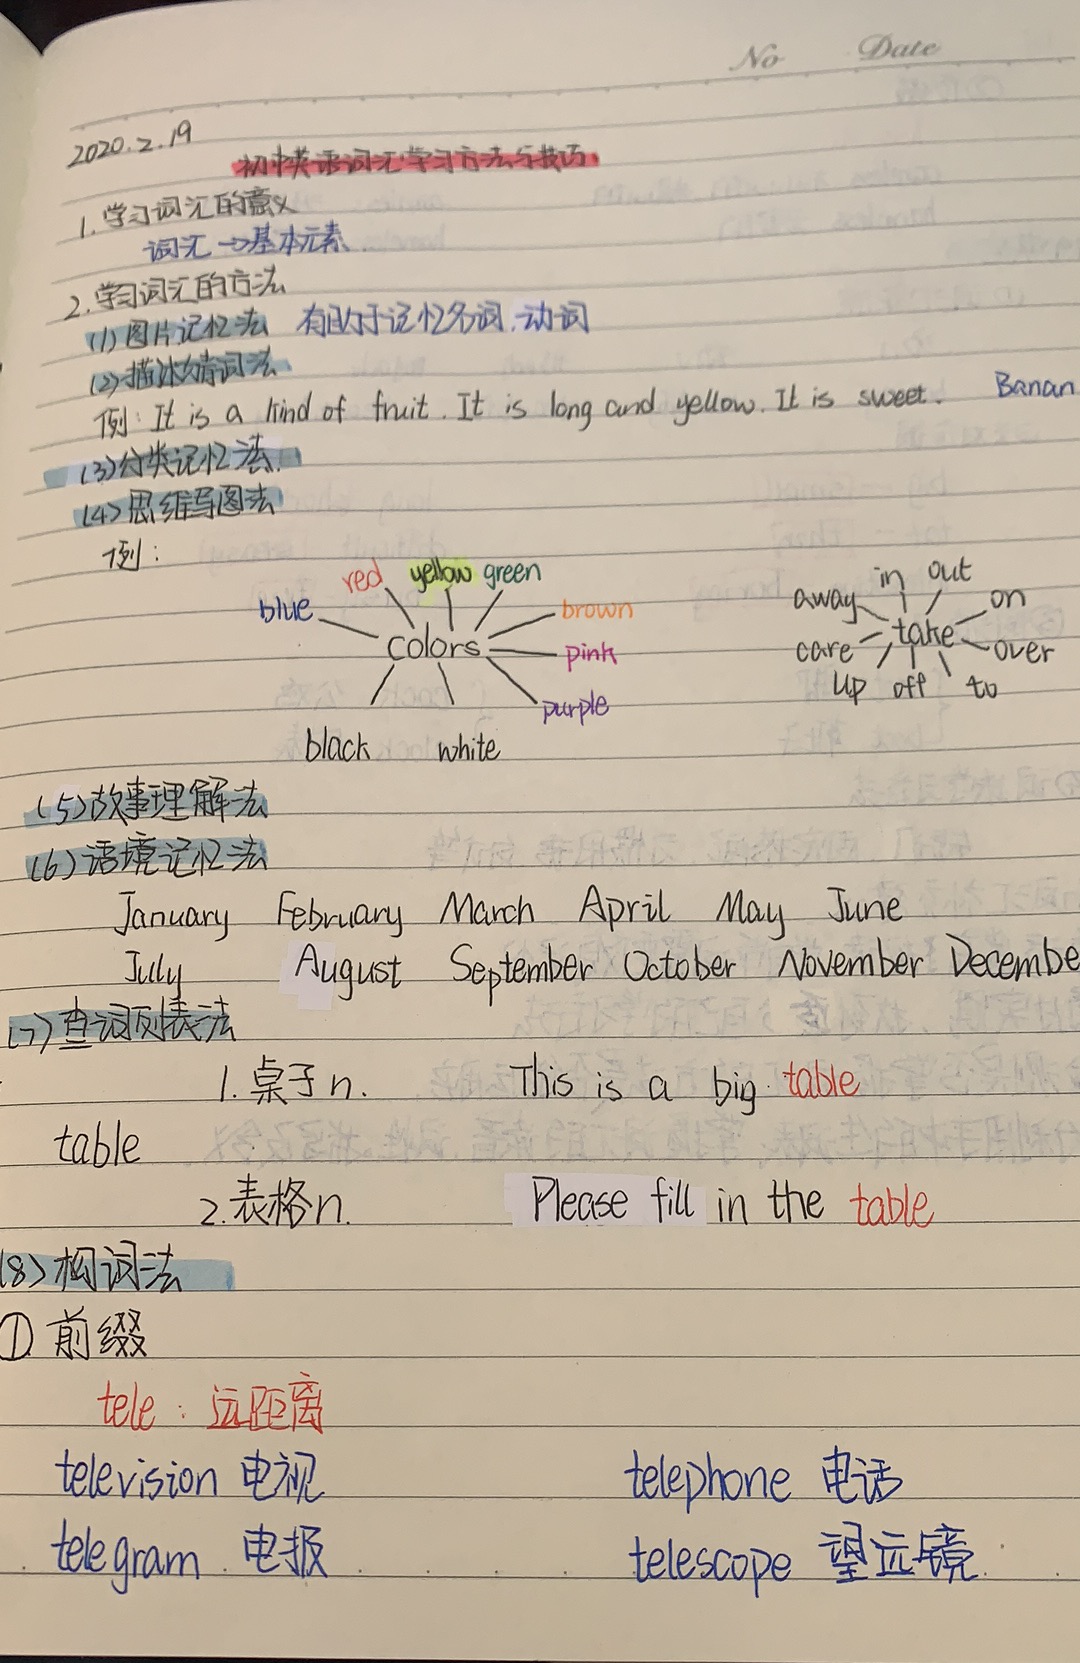 No Date
2020.2.19
初中英语词汇学习方法与技巧
1.学习词汇的意义
词汇→基本元素
2.学习词汇的方法
(1)图片记忆法 有助于记忆名词.动词
(2)描述猜词法
例: It is a kind of fruit. It is long and yellow. It is sweet. Banan
(3)分类记忆法
(4)思维导图法
例:
red yellow green
blue brown
colors
pink
purple
black white
in out
away on
take
care over
up off to
(5)故事理解法
(6)语境记忆法
January February March April May June
July August September October November Decembe
(7)查词列表法
1.桌子n. This is a big table
table
2.表格n. Please fill in the table
(8)构词法
①前缀
tele: 远距离
television 电视 telephone 电话
telegram 电报 telescope 望远镜